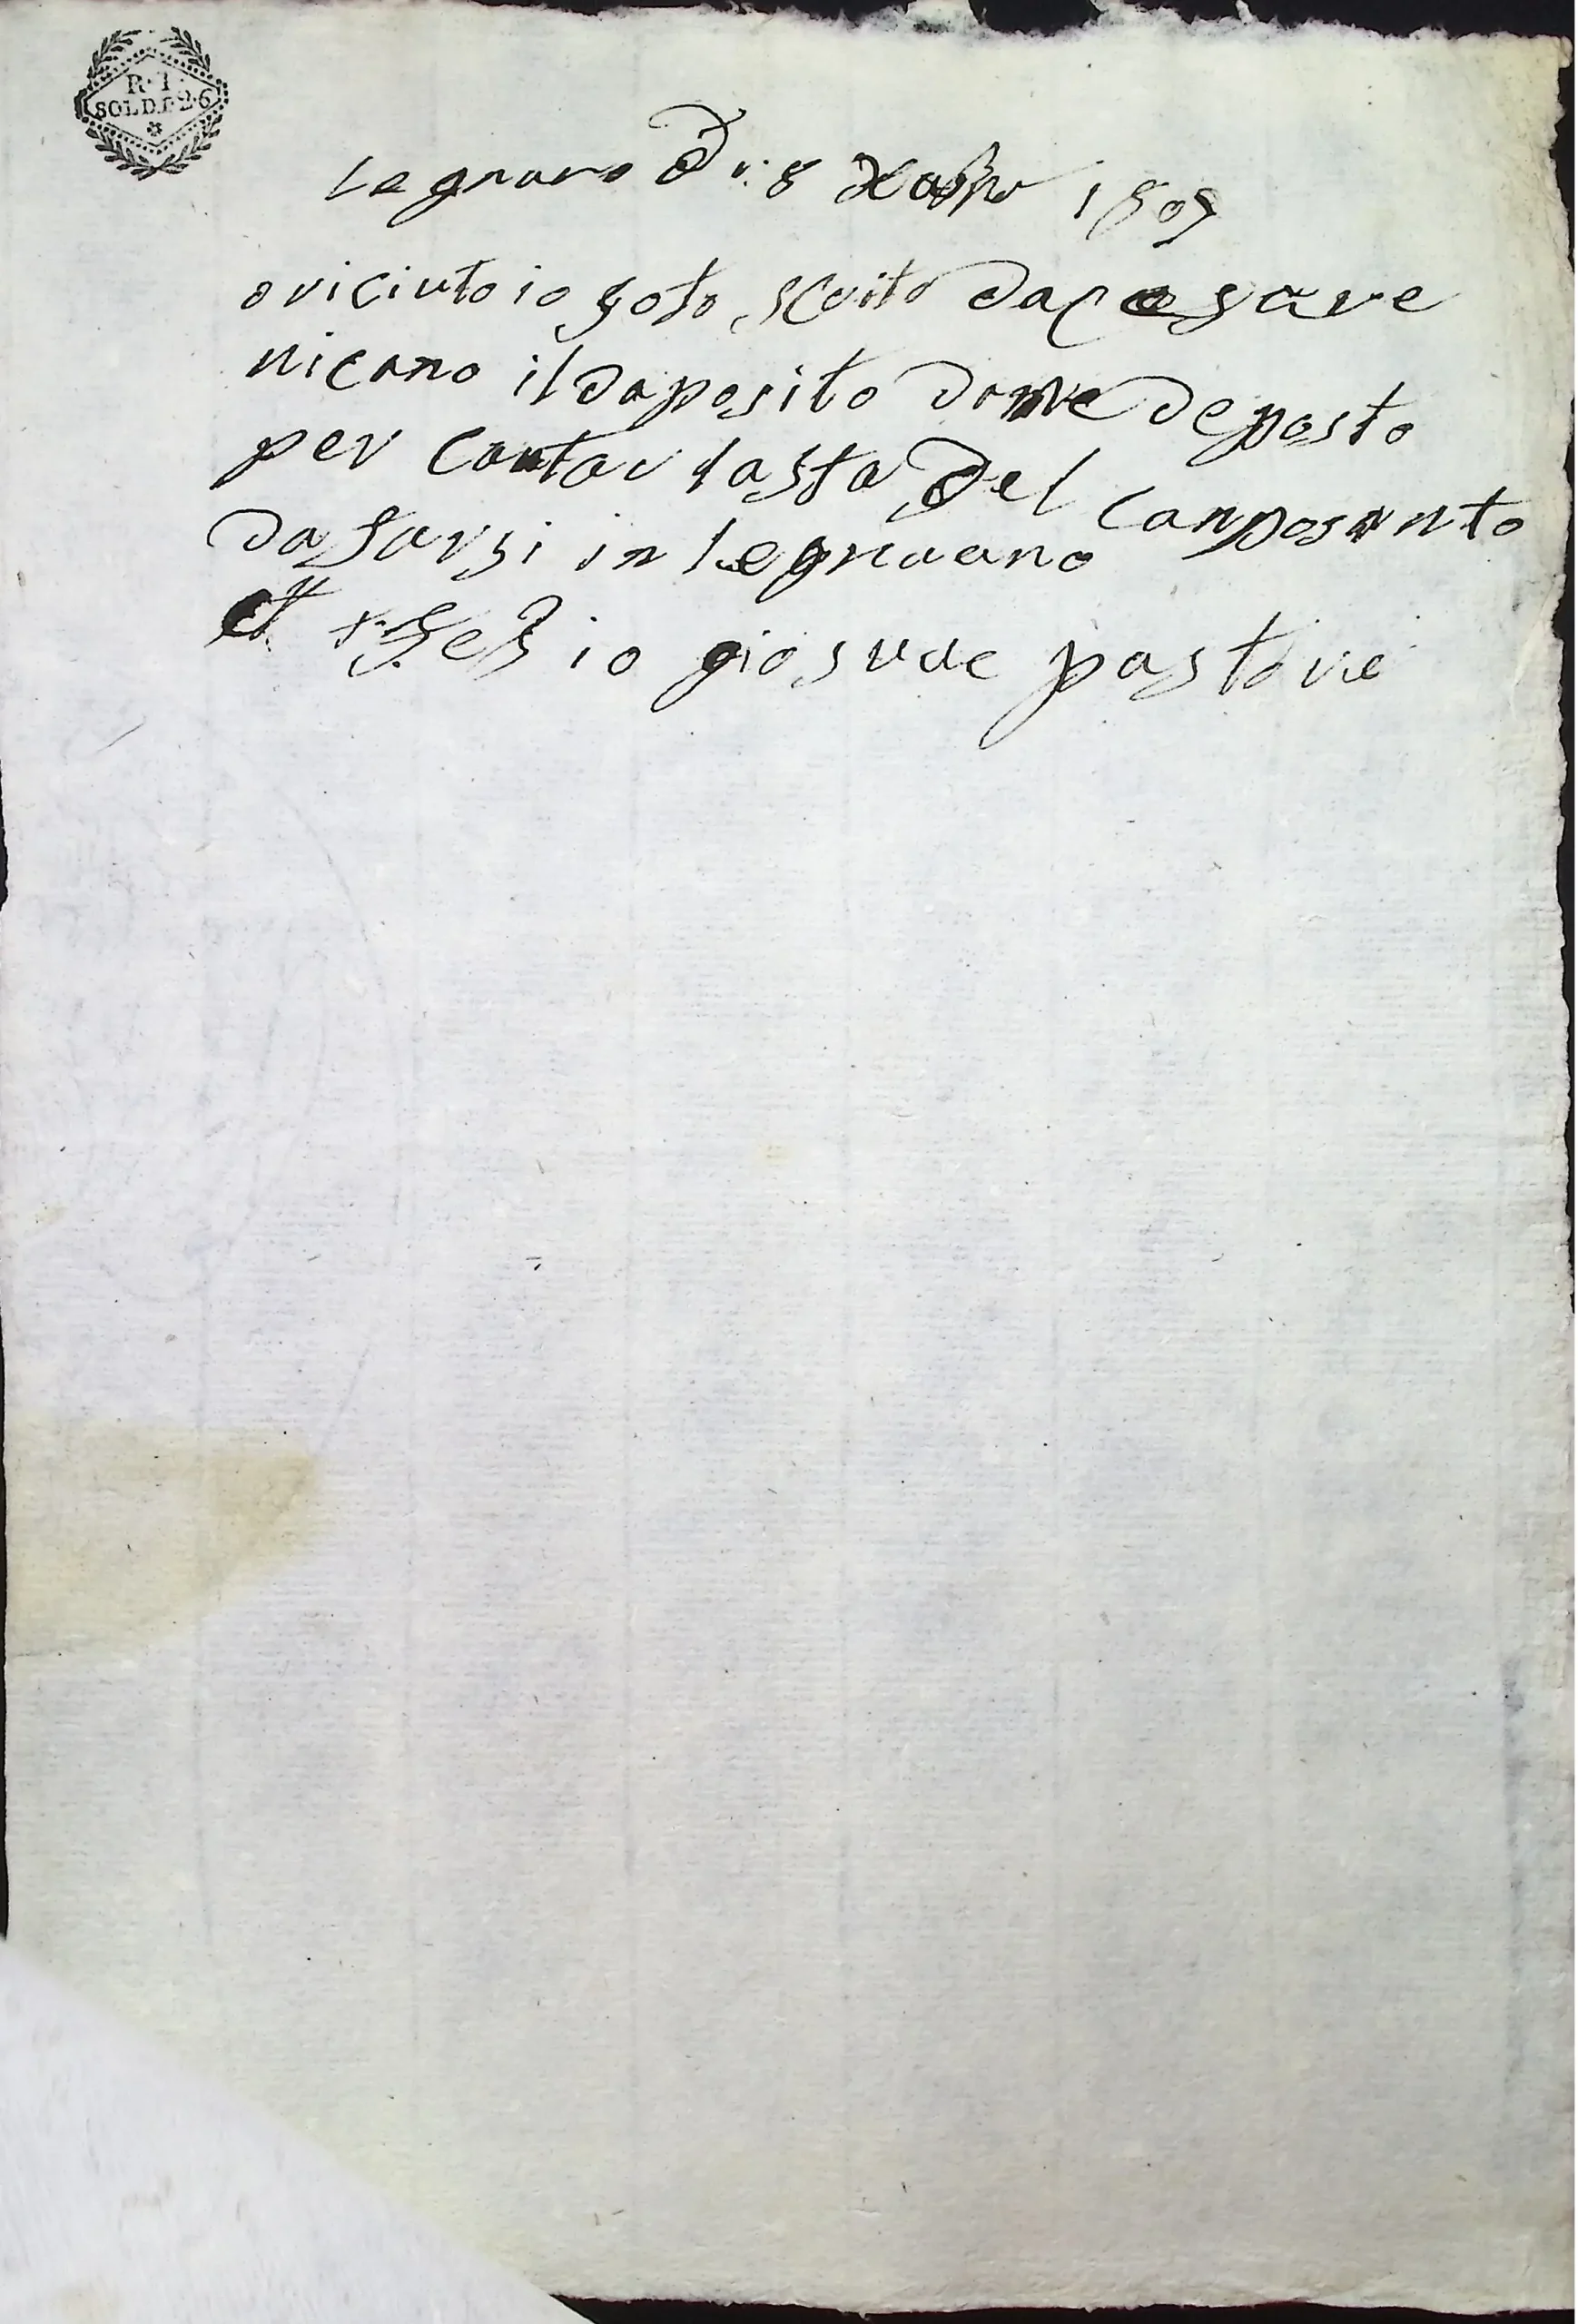 R. I.
SOLDI 26
Legnaro Di: 8 Xbre 1807
o riciuto io soto scrito da Cesare
nicano il daposito dame deposto
per Contar lasta Del Camposanto
da farsi in Legnaano
io giosuae pastore